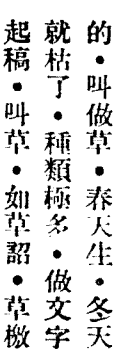 的·叫做草·春天生·冬天
就枯了·種類極多·做文字
起稿·叫草·如草詔·草檄